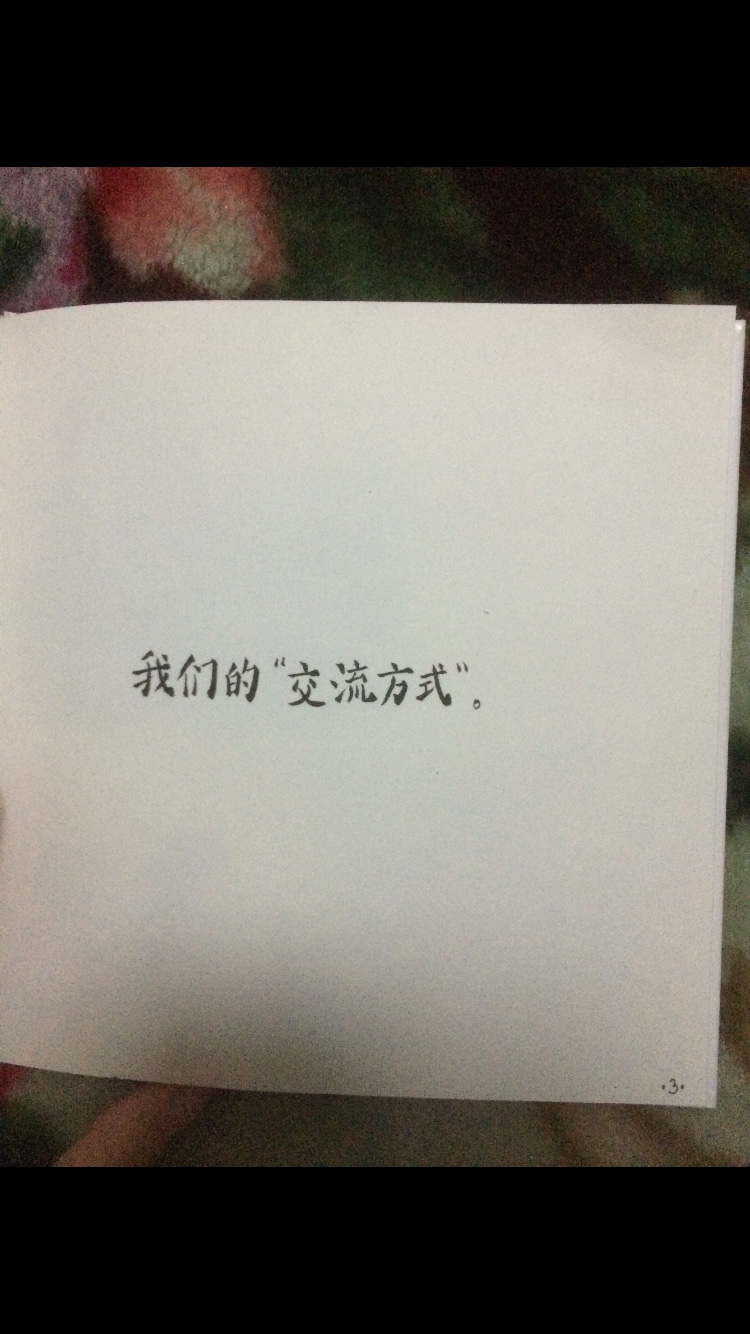 我们的“交流方式”。
·3·